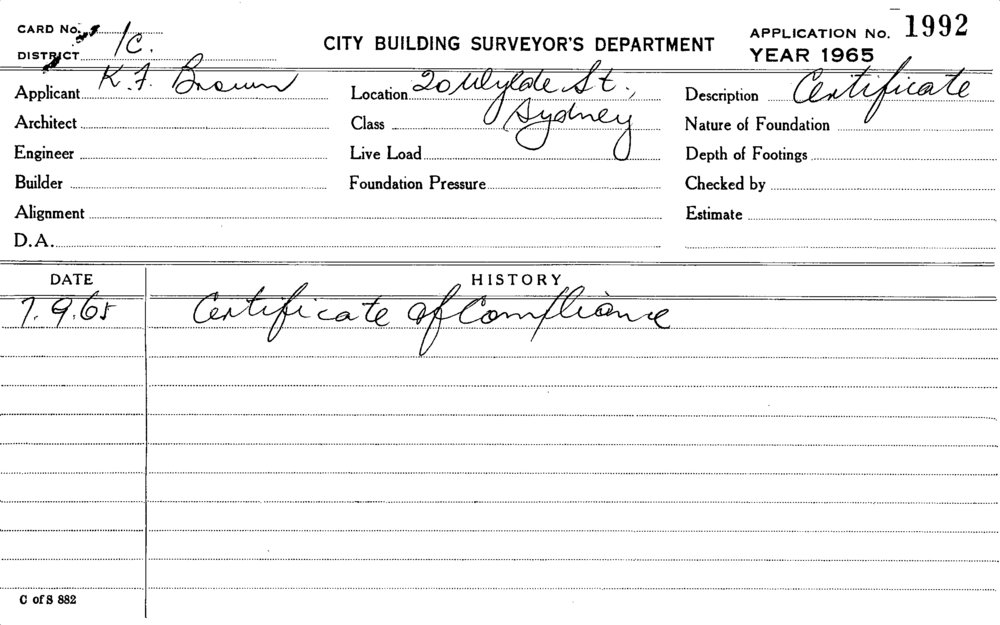 CARD No.
DISTRICT 1C.
CITY BUILDING SURVEYOR'S DEPARTMENT
APPLICATION No. 1992
YEAR 1965
Applicant K. F. Brown
Location 20 Wylde St.,
Description Certificate
Architect
Class Sydney
Nature of Foundation
Engineer
Live Load
Depth of Footings
Builder
Foundation Pressure
Checked by
Alignment
Estimate
D.A.
DATE HISTORY
7.9.65 Certificate of Compliance
C of S 882